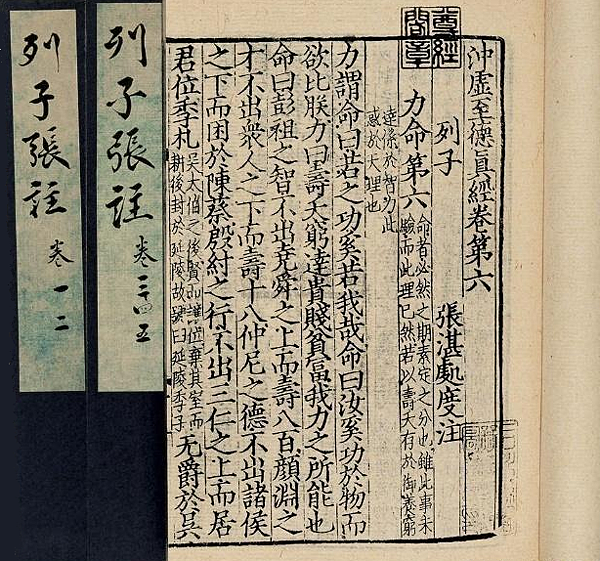 尊經
閣章
沖虛至德真經卷第六
列子 張湛處度注
力命第六 命者必然之期素定之分也雖此事未
驗而此理已然若以壽夭有於御養窮
達係於智力此
惑於天理也
力謂命曰若之功奚若我哉命曰汝奚功於物而
欲比朕力曰壽夭窮達貴賤貧富我力之所能也
命曰彭祖之智不出堯舜之上而壽八百顏淵之
才不出衆人之下而壽十八仲尼之德不出諸侯
之下而困於陳蔡殷紂之行不出三仁之上而居
君位季札 吳太伯之後賢而讓位棄其室而
耕後封於延陵故號曰延陵季子 无爵於吳
列子張註 卷三四五
列子張註 卷一二